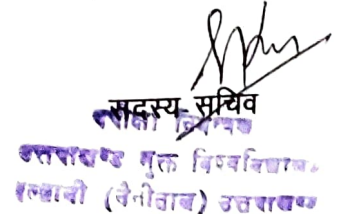 सदस्य सचिव
परीक्षा नियन्त्रक
उत्तराखण्ड मुक्त विश्वविद्यालय
हल्द्वानी (नैनीताल) उत्तराखण्ड